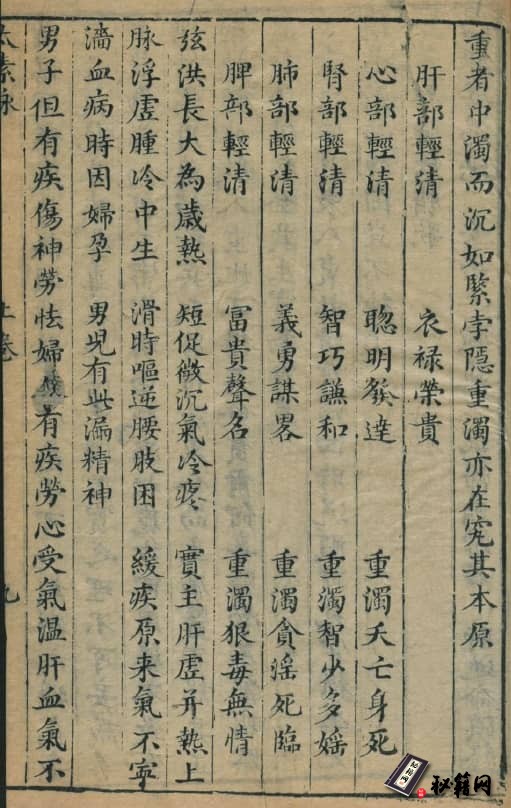 重者中濁而沉如緊孛隱重濁亦在究其本原
肝部輕清　衣祿榮貴
心部輕清　聰明發達　重濁夭亡身死
腎部輕清　智巧謙和　重濁智少多婬
肺部輕清　義勇謀畧　重濁貪淫死臨
脾部輕清　富貴聲名　重濁狠毒無情
弦洪長大為歳熱　短促微沉氣冷疼　實主肝虛并熱上
脉浮虛腫冷中生　滑時嘔逆腰肢困　緩疾原来氣不寜
濇血病時因婦孕　男児有此漏精神
男子但有疾傷神勞怯婦有疾勞心受氣温肝血氣不
太素脉　上卷　九
秘籍网